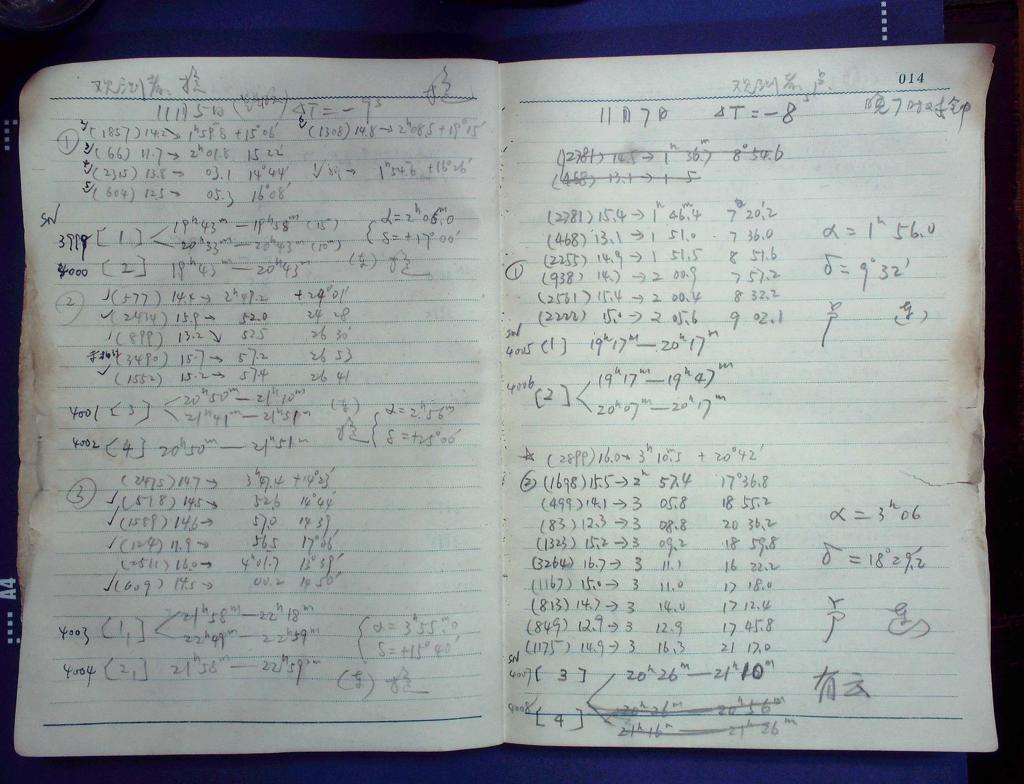 观测者:
11月5日 ΔT=-9s
① (1857) 14.2→ 1h59.8 +15°06' (1308) 14.8→ 2h08.5 +19°15'
(66) 11.7→ 2h01.8 15 22'
(2315) 13.8→ 03.1 14°44' 1h54.6 +16°26'
(604) 12.5→ 05.3 16°08'
SN
3999 [1] 19h43m—19h58m (15) α=2h06m.0
20h33m—20h43m (10m) δ=+17°00'
4000 [2] 19h43m—20h43m
② (577) 14.4→ 2h49.2 +24°01'
(2474) 15.9→ 52.0 24 28
(899) 13.2 52.5 26 30'
(3490) 15.7→ 57.2 26 53
(1552) 15.2→ 57.4 26 41
4001 [3] 20h50m—21h10m α=2h56m
21h41m—21h51m δ=+25°00'
4002 [4] 20h50m—21h51m
③ (2475) 14.7 3h47.4 +14°23'
(518) 14.5→ 52.6 14°44'
(1589) 14.6→ 57.0 14 39
(124) 11.9→ 56.5 17°06'
(2511) 16.0→ 4h01.7 15°39'
(609) 14.5→ 00.2 10 50'
4003 [1,] 21h58m—22h18m α=3h55m.0
22h49m—22h59m δ=+15°40'
4004 [2,] 21h58m—22h59m
观测者: 014
11月7日 ΔT=-8s
(2781) 14.5→ 1h 36.7 8°54.6
(468) 13.1→ 1 5
(2781) 15.4→ 1h 46.4 7° 20.2
(468) 13.1→ 1 51.0 7 36.0 α=1h56.0
(2255) 14.9→ 1 51.5 8 51.6
① (938) 14.7→ 2 00.9 7 57.2 δ=9°32'
(2561) 15.4→ 2 00.4 8 32.2
(2222) 15.0→ 2 05.6 9 02.1
SN
4005 [1] 19h17m—20h17m
4006 [2] 19h17m—19h47m
20h07m—20h17m
(2899) 16.0→ 3h10m.5 +20°42'
② (1698) 15.5→ 2h 57.4 17°36.8
(499) 14.1→ 3 05.8 18 55.2
(83) 12.3→ 3 08.8 20 36.2 α=3h06
(1323) 15.2→ 3 09.2 18 59.8
(3264) 16.7→ 3 11.1 16 22.2 δ=18°29.2'
(1167) 15.0→ 3 11.0 17 18.0
(813) 14.7→ 3 14.0 17 12.4
(849) 12.9→ 3 12.9 17 45.8
(1175) 14.9→ 3 16.3 21 17.0
SN
4007 [3] 20h26m—21h10m 有云
4008 [4] 20h26m—20h56m
21h16m—21h26m
A4